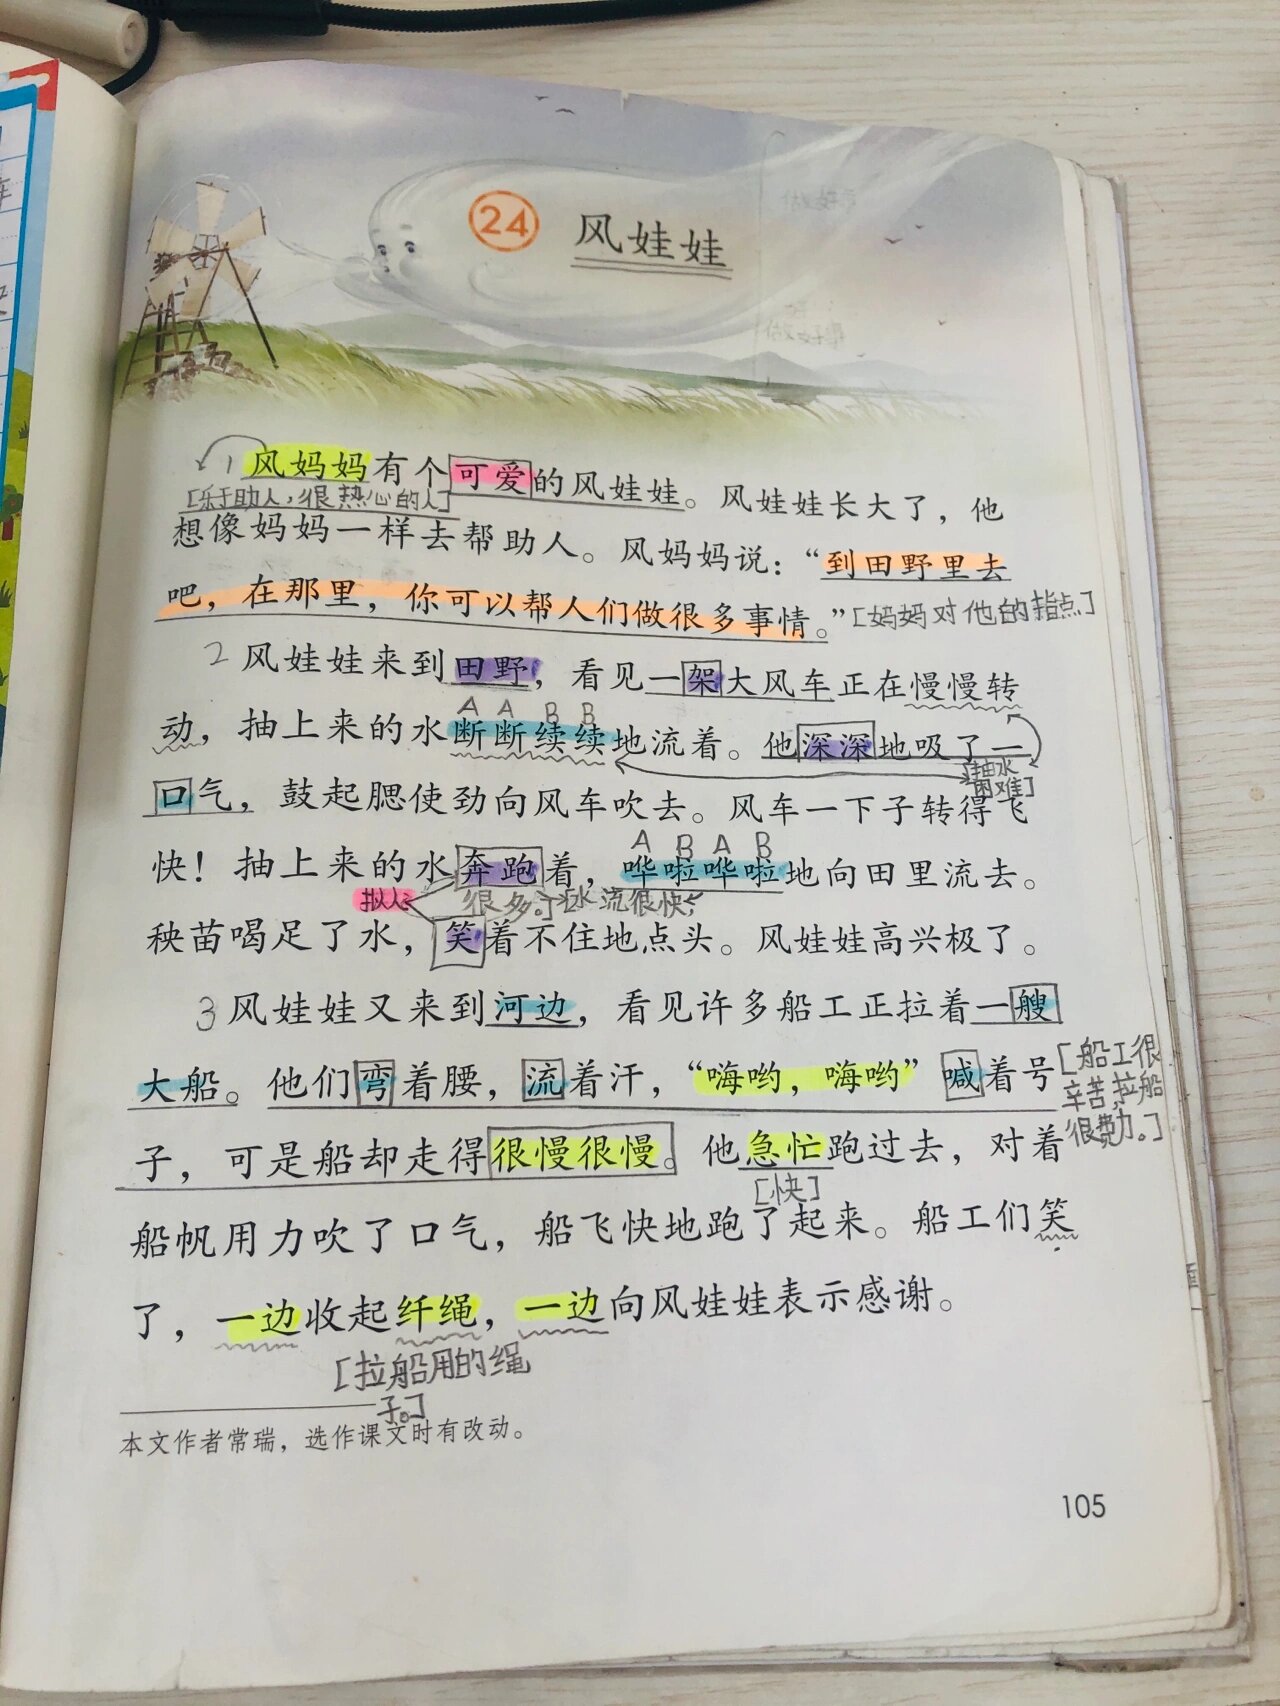 24 风娃娃
1 风妈妈有个可爱的风娃娃。风娃娃长大了，他
[乐于助人，很热心的人]
想像妈妈一样去帮助人。风妈妈说：“到田野里去
吧，在那里，你可以帮人们做很多事情。”[妈妈对他的指点]
2 风娃娃来到田野，看见一架大风车正在慢慢转
A A B B
动，抽上来的水断断续续地流着。他深深地吸了一
[抽水
困难]
口气，鼓起腮使劲向风车吹去。风车一下子转得飞
A B A B
快！抽上来的水奔跑着，哗啦哗啦地向田里流去。
拟人 很多。] [水流很快，
秧苗喝足了水，笑着不住地点头。风娃娃高兴极了。
3 风娃娃又来到河边，看见许多船工正拉着一艘
大船。他们弯着腰，流着汗，“嗨哟，嗨哟”喊着号
[船工很
辛苦，拉船
很费力。]
子，可是船却走得很慢很慢。他急忙跑过去，对着
[快]
船帆用力吹了口气，船飞快地跑了起来。船工们笑
了，一边收起纤绳，一边向风娃娃表示感谢。
[拉船用的绳
子。]
本文作者常瑞，选作课文时有改动。
105